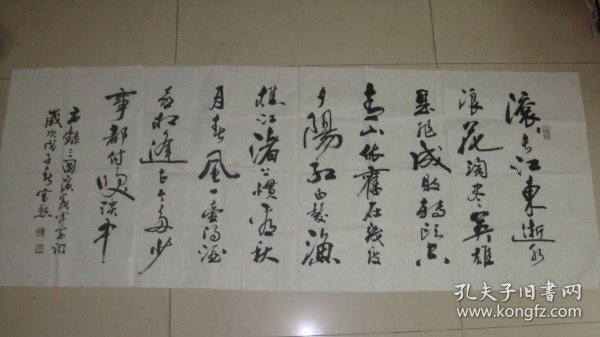 滚滚长江东逝水
浪花淘尽英雄
是非成败转头空
青山依旧在几度
夕阳红白发渔
樵江渚上惯看秋
月春风一壶浊酒
喜相逢古今多少
事都付笑谈中
右录三国演义开篇词
岁次戊子秋
孔夫子旧书网
www.kongfz.com